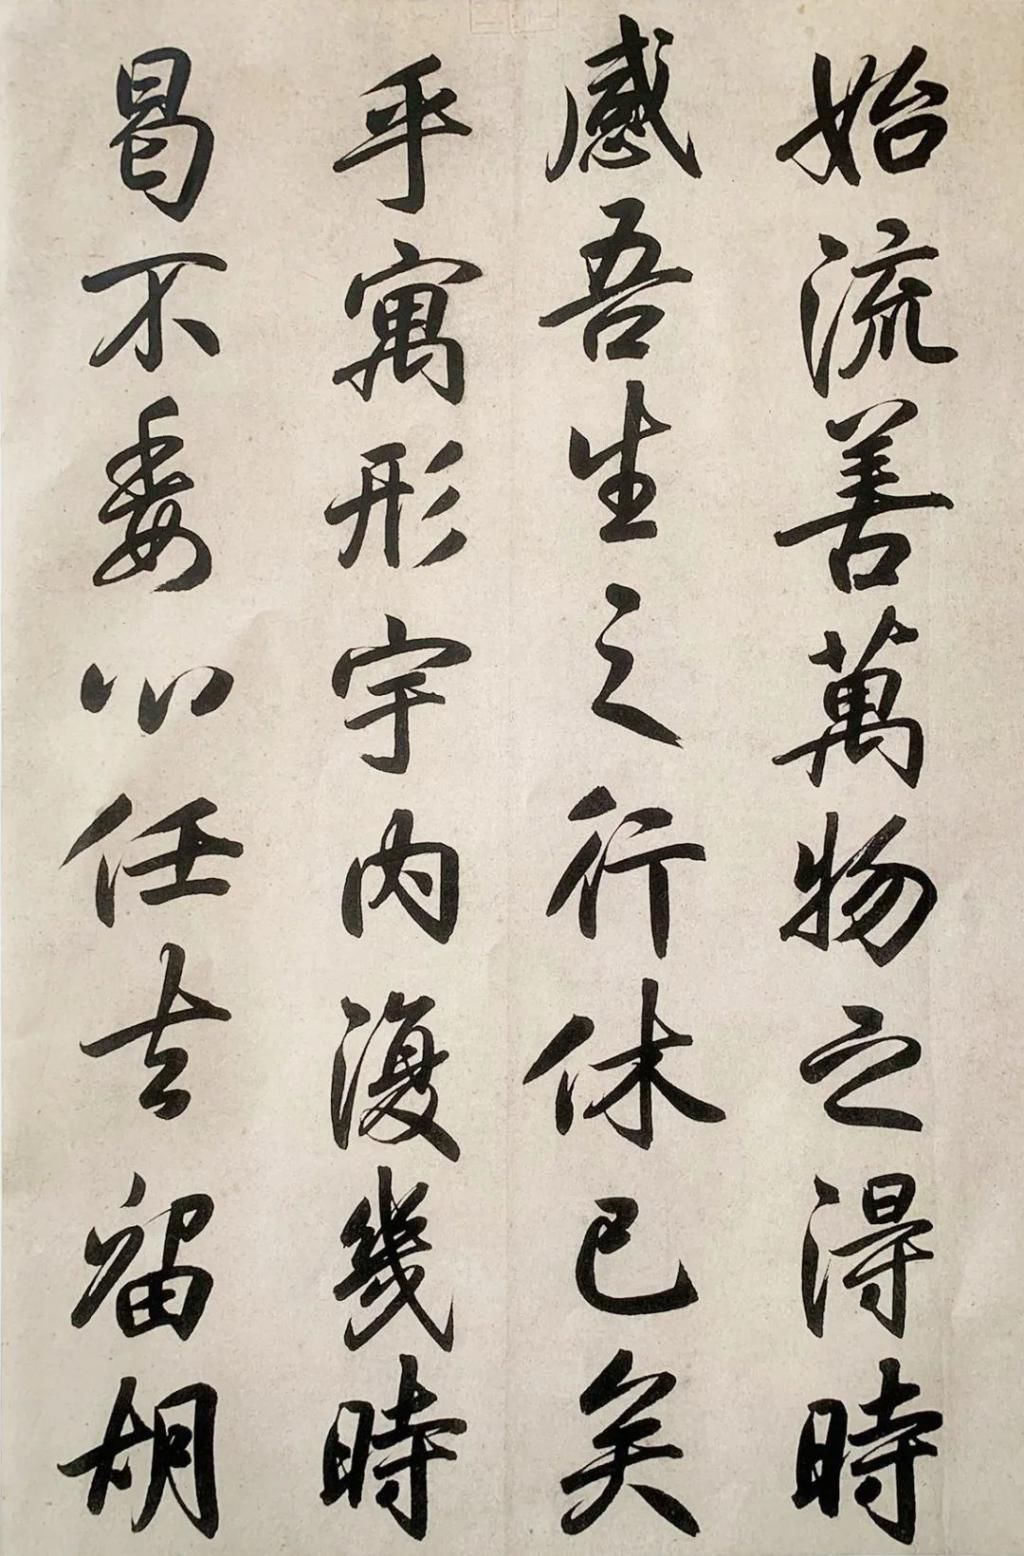 始流善萬物之得時
感吾生之行休已矣
乎寓形宇内復幾時
曷不委心任去留胡